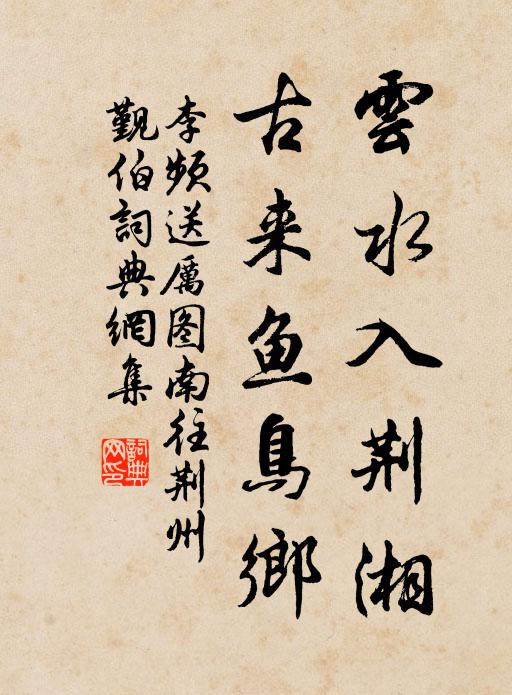 雲水入荆湘
古来鱼鳥鄉
李频送厲图南往荆州
觐伯詞典網集
詞典网印